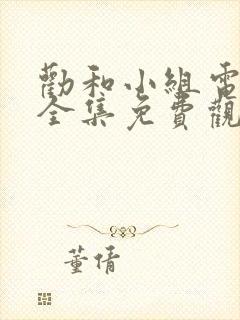 勸和小組電
全集免費觀
董倩